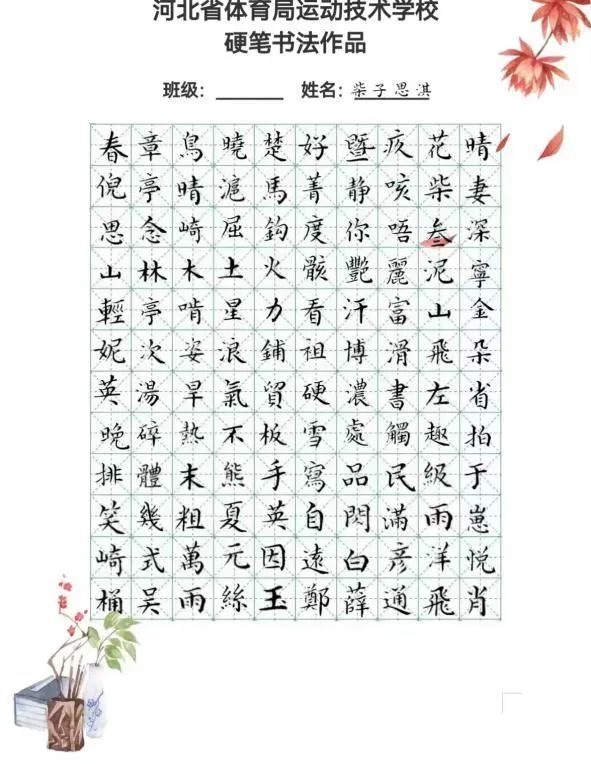 河北省体育局运动技术学校
硬笔书法作品
班级： 姓名：柴子思淇
春章鳥曉楚好暨疚花晴
倪亭晴滬馬菁静咳柴妻
思念崎屈鈎度你唔叁深
山林木土火骸艷麗泥寧
輕亭啃星力看汗富山金
妮次姿浪鋪祖博滑飛朵
英湯旱氣貿硬濃書左省
晚碎熱不板雪處觸趣拍
排體末熊手寫品民級于
笑幾粗夏英自閃滿雨崽
崎式萬元因遠白彦洋悦
桶吴雨絲玉鄭薛通飛肖